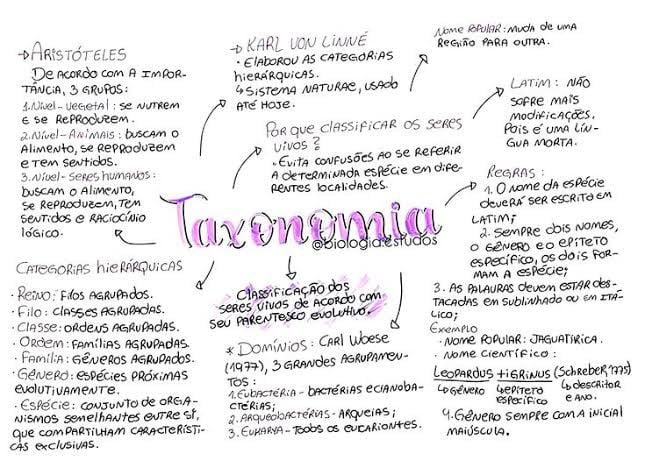 → ARISTÓTELES
DE ACORDO COM A IMPOR-
TÂNCIA, 3 GRUPOS:
1. NÍVEL-VEGETAL: SE NUTREM
E SE REPRODUZEM.
2. NÍVEL-ANIMAIS: BUSCAM O
ALIMENTO, SE REPRODUZEM
E TEM SENTIDOS.
3. NÍVEL-SERES HUMANOS:
BUSCAM O ALIMENTO,
SE REPRODUZEM, TEM
SENTIDOS E RACIOCÍNIO
LÓGICO.
→ KARL VON LINNÉ
• ELABOROU AS CATEGORIAS
HIERÁRQUICAS.
↳ SISTEMA NATURAE, USADO
ATÉ HOJE.
NOME POPULAR: MUDA DE UMA
REGIÃO PARA OUTRA.
POR QUE CLASSIFICAR OS SERES
VIVOS?
• EVITA CONFUSÕES AO SE REFERIR
A DETERMINADA ESPÉCIE EM DIFE-
RENTES LOCALIDADES.
LATIM: NÃO
SOFRE MAIS
MODIFICAÇÕES.
POIS É UMA LÍN-
GUA MORTA.
Taxonomia
@biologia.estudos
CLASSIFICAÇÃO DOS
SERES VIVOS DE ACORDO COM
SEU PARENTESCO EVOLUTIVO.
REGRAS:
1. O NOME DA ESPÉCIE
DEVERÁ SER ESCRITO EM
LATIM;
2. SEMPRE DOIS NOMES,
O GÊNERO E O EPÍTETO
ESPECÍFICO, OS DOIS FOR-
MAM A ESPÉCIE;
3. AS PALAVRAS DEVEM ESTAR DES-
TACADAS EM SUBLINHADO OU EM ITÁ-
LICO;
EXEMPLO
• NOME POPULAR: JAGUATIRICA.
• NOME CIENTÍFICO:
LEOPARDUS TIGRINUS (SCHREBER, 1775)
↳ GÊNERO ↳ EPÍTETO ESPECÍFICO ↳ DESCRITOR E ANO.
4. GÊNERO SEMPRE COM A INICIAL
MAIÚSCULA.
CATEGORIAS HIERÁRQUICAS
• REINO: FILOS AGRUPADOS.
• FILO: CLASSES AGRUPADAS.
• CLASSE: ORDENS AGRUPADAS.
• ORDEM: FAMÍLIAS AGRUPADAS.
• FAMÍLIA: GÊNEROS AGRUPADOS.
• GÊNERO: ESPÉCIES PRÓXIMAS
EVOLUTIVAMENTE.
• ESPÉCIE: CONJUNTO DE ORGA-
NISMOS SEMELHANTES ENTRE SÍ,
QUE COMPARTILHAM CARACTERÍSTI-
CAS EXCLUSIVAS.
* DOMÍNIOS: CARL WOESE
(1977), 3 GRANDES AGRUPAMEN-
TOS:
1. EUBACTÉRIA - BACTÉRIAS E CIANOBAC-
TÉRIAS;
2. ARQUEOBACTÉRIAS - ARQUEIAS;
3. EUKARYA - TODOS OS EUCARIONTES.